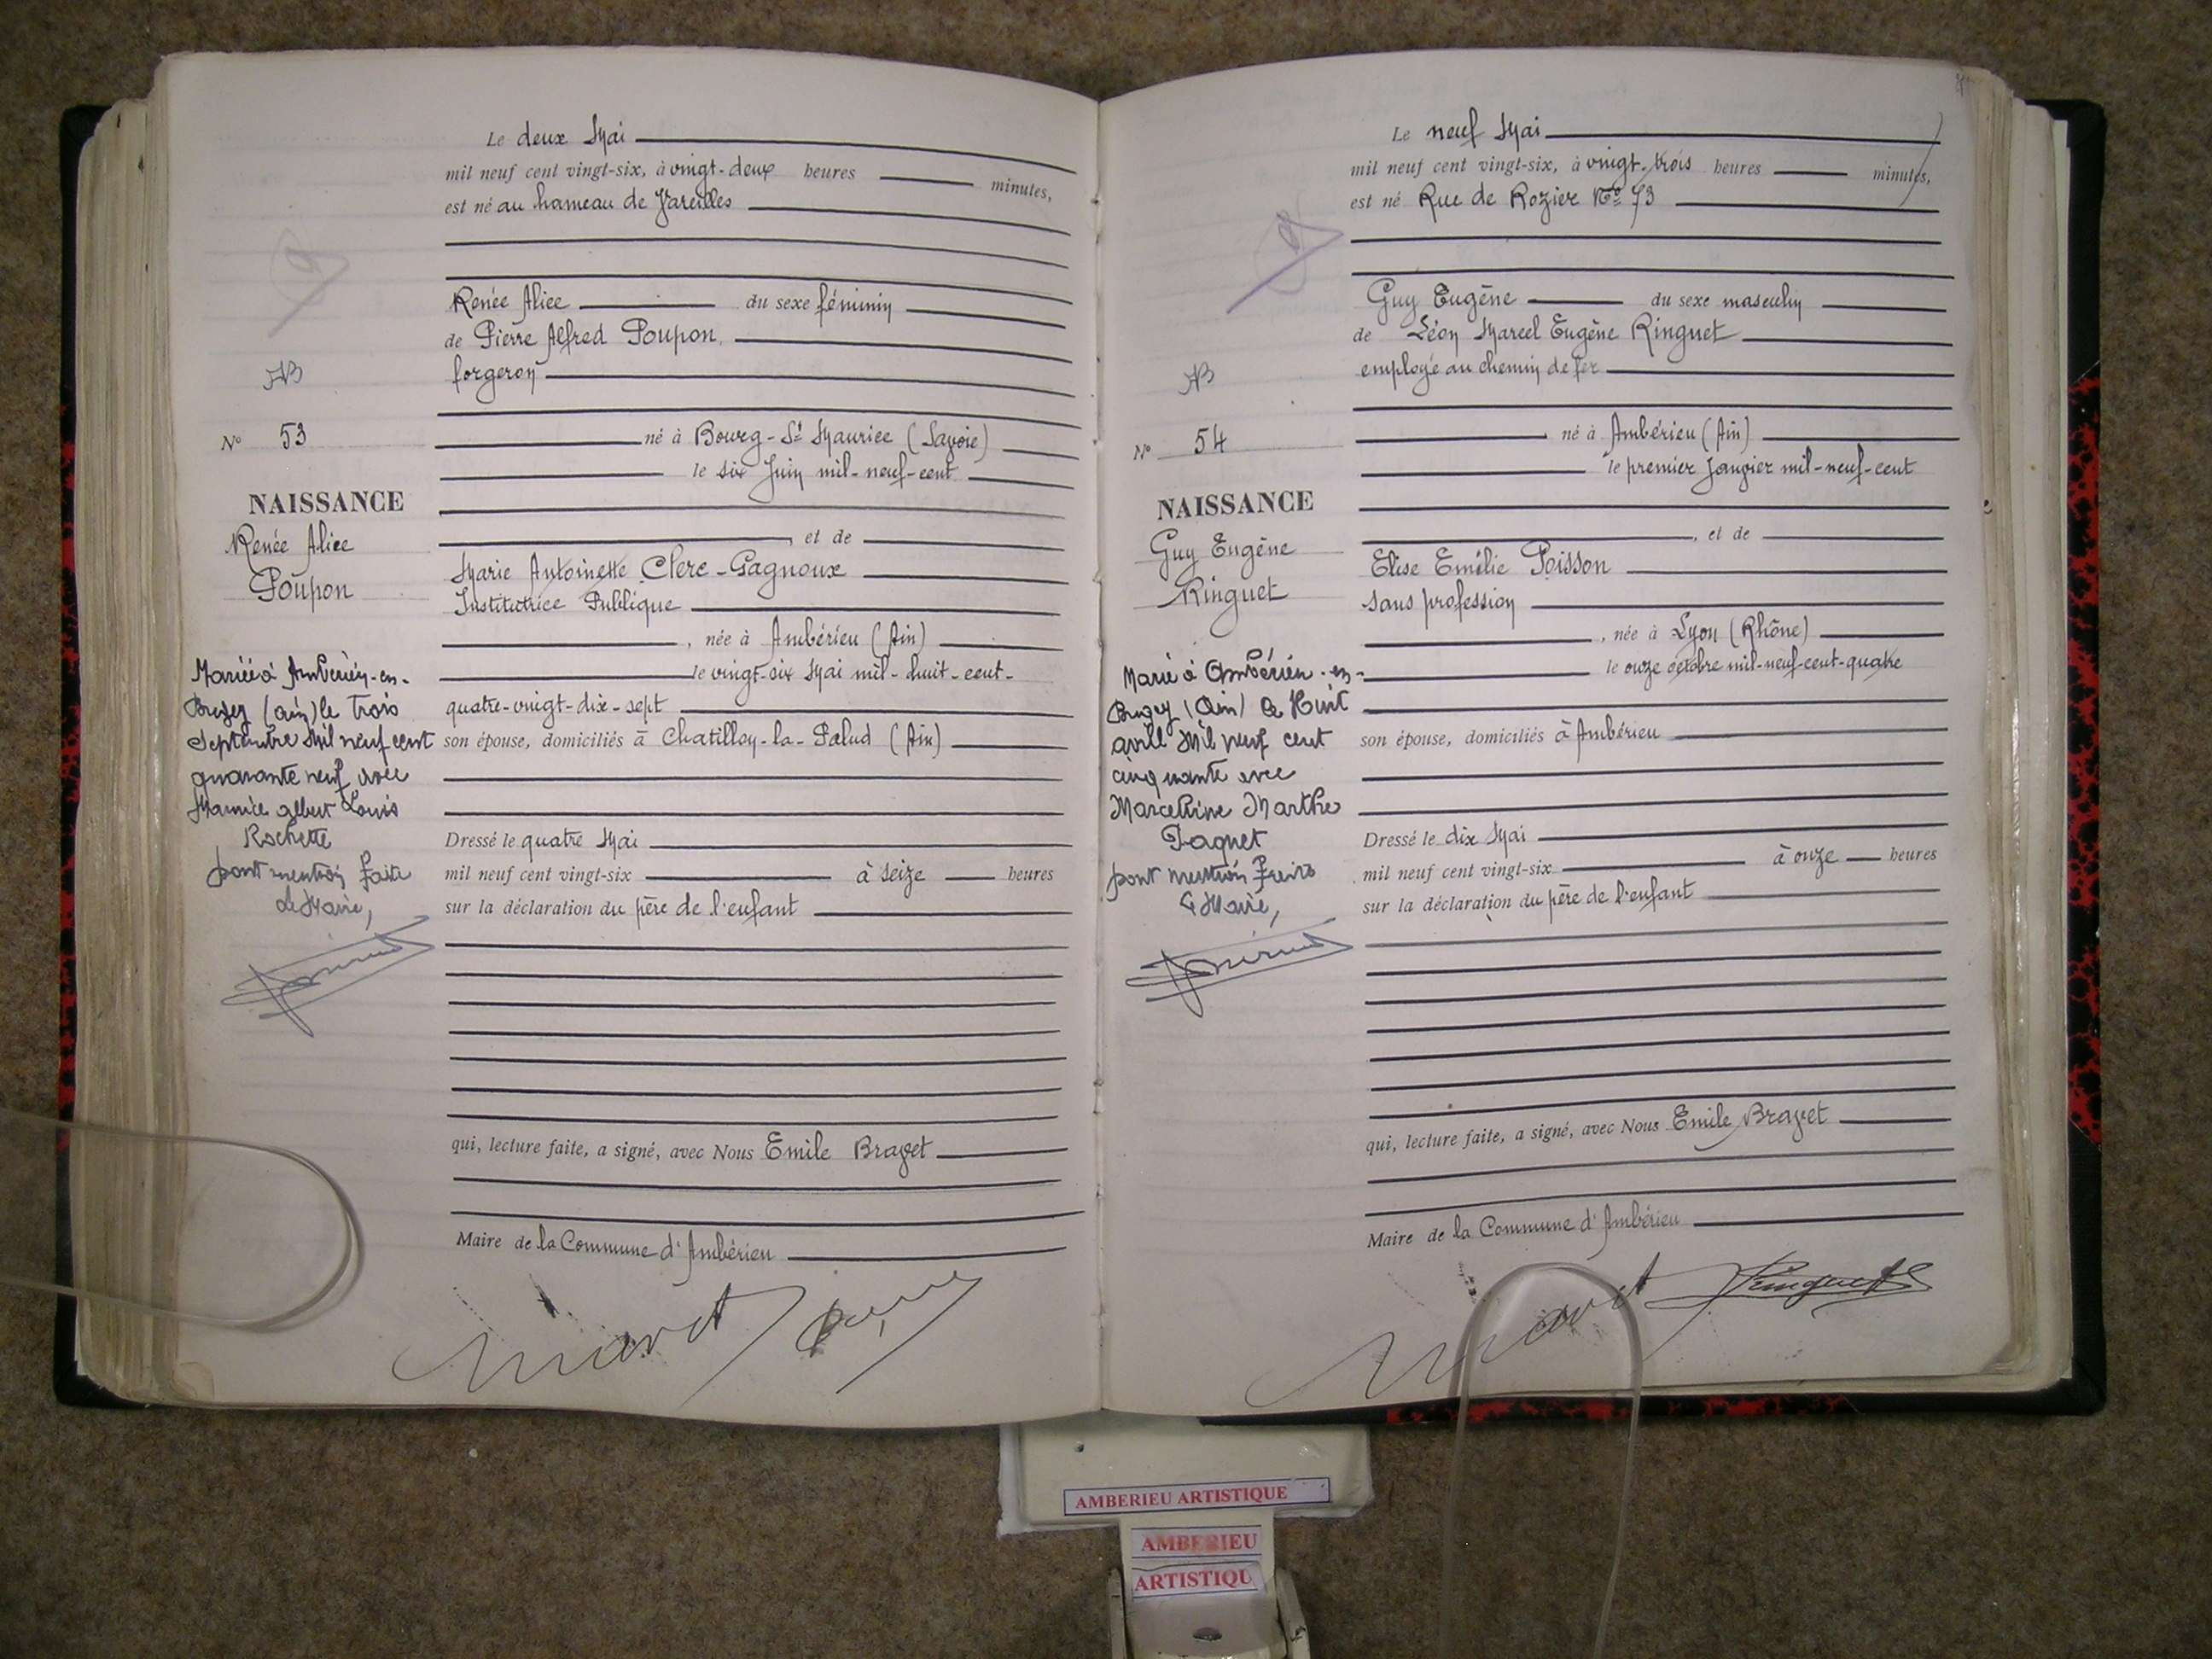 Le deux Mai
mil neuf cent vingt-six, à vingt-deux heures minutes,
est né au hameau de Vareilles
Renée Alice du sexe féminin
de Pierre Alfred Poupon,
forgeron
né à Bourg-St Maurice (Savoie)
le six Juin mil-neuf-cent
, et de
Marie Antoinette Clerc-Gagnoux
Institutrice Publique
, née à Ambérieu (Ain)
le vingt-six Mai mil-huit-cent-
quatre-vingt-dix-sept
son épouse, domiciliés à Chatillon-la-Palud (Ain)
Dressé le quatre Mai
mil neuf cent vingt-six à seize heures
sur la déclaration du père de l'enfant
qui, lecture faite, a signé, avec Nous Emile Bravet
Maire de la Commune d'Ambérieu
N° 53
NAISSANCE
Renée Alice
Poupon
Mariée à Ambérieu-en-
Bugey (ain) le trois
Septembre Mil neuf cent
quarante neuf avec
Maurice albert Louis
Rochette
dont mention faite
Le Maire,
Le neuf Mai
mil neuf cent vingt-six, à vingt-trois heures minutes,
est né Rue de Rozier No 73
Guy Eugène du sexe masculin
de Léon Marcel Eugène Ringuet
employé au chemin de fer
né à Ambérieu (Ain)
le premier Janvier mil-neuf-cent
, et de
Elise Emélie Poisson
sans profession
, née à Lyon (Rhône)
le onze octobre mil-neuf-cent-quatre
son épouse, domiciliés à Ambérieu
Dressé le dix Mai
mil neuf cent vingt-six à onze heures
sur la déclaration du père de l'enfant
qui, lecture faite, a signé, avec Nous Emile Bravet
Maire de la Commune d'Ambérieu
Ringuet
N° 54
NAISSANCE
Guy Eugène
Ringuet
Marié à Ambérieu-en-
Bugey (Ain) le Huit
avril Mil neuf cent
cinquante avec
Marcelline Marthe
Paquet
dont mention faite
Le Maire,
AMBERIEU ARTISTIQUE
AMBERIEU
ARTISTIQU